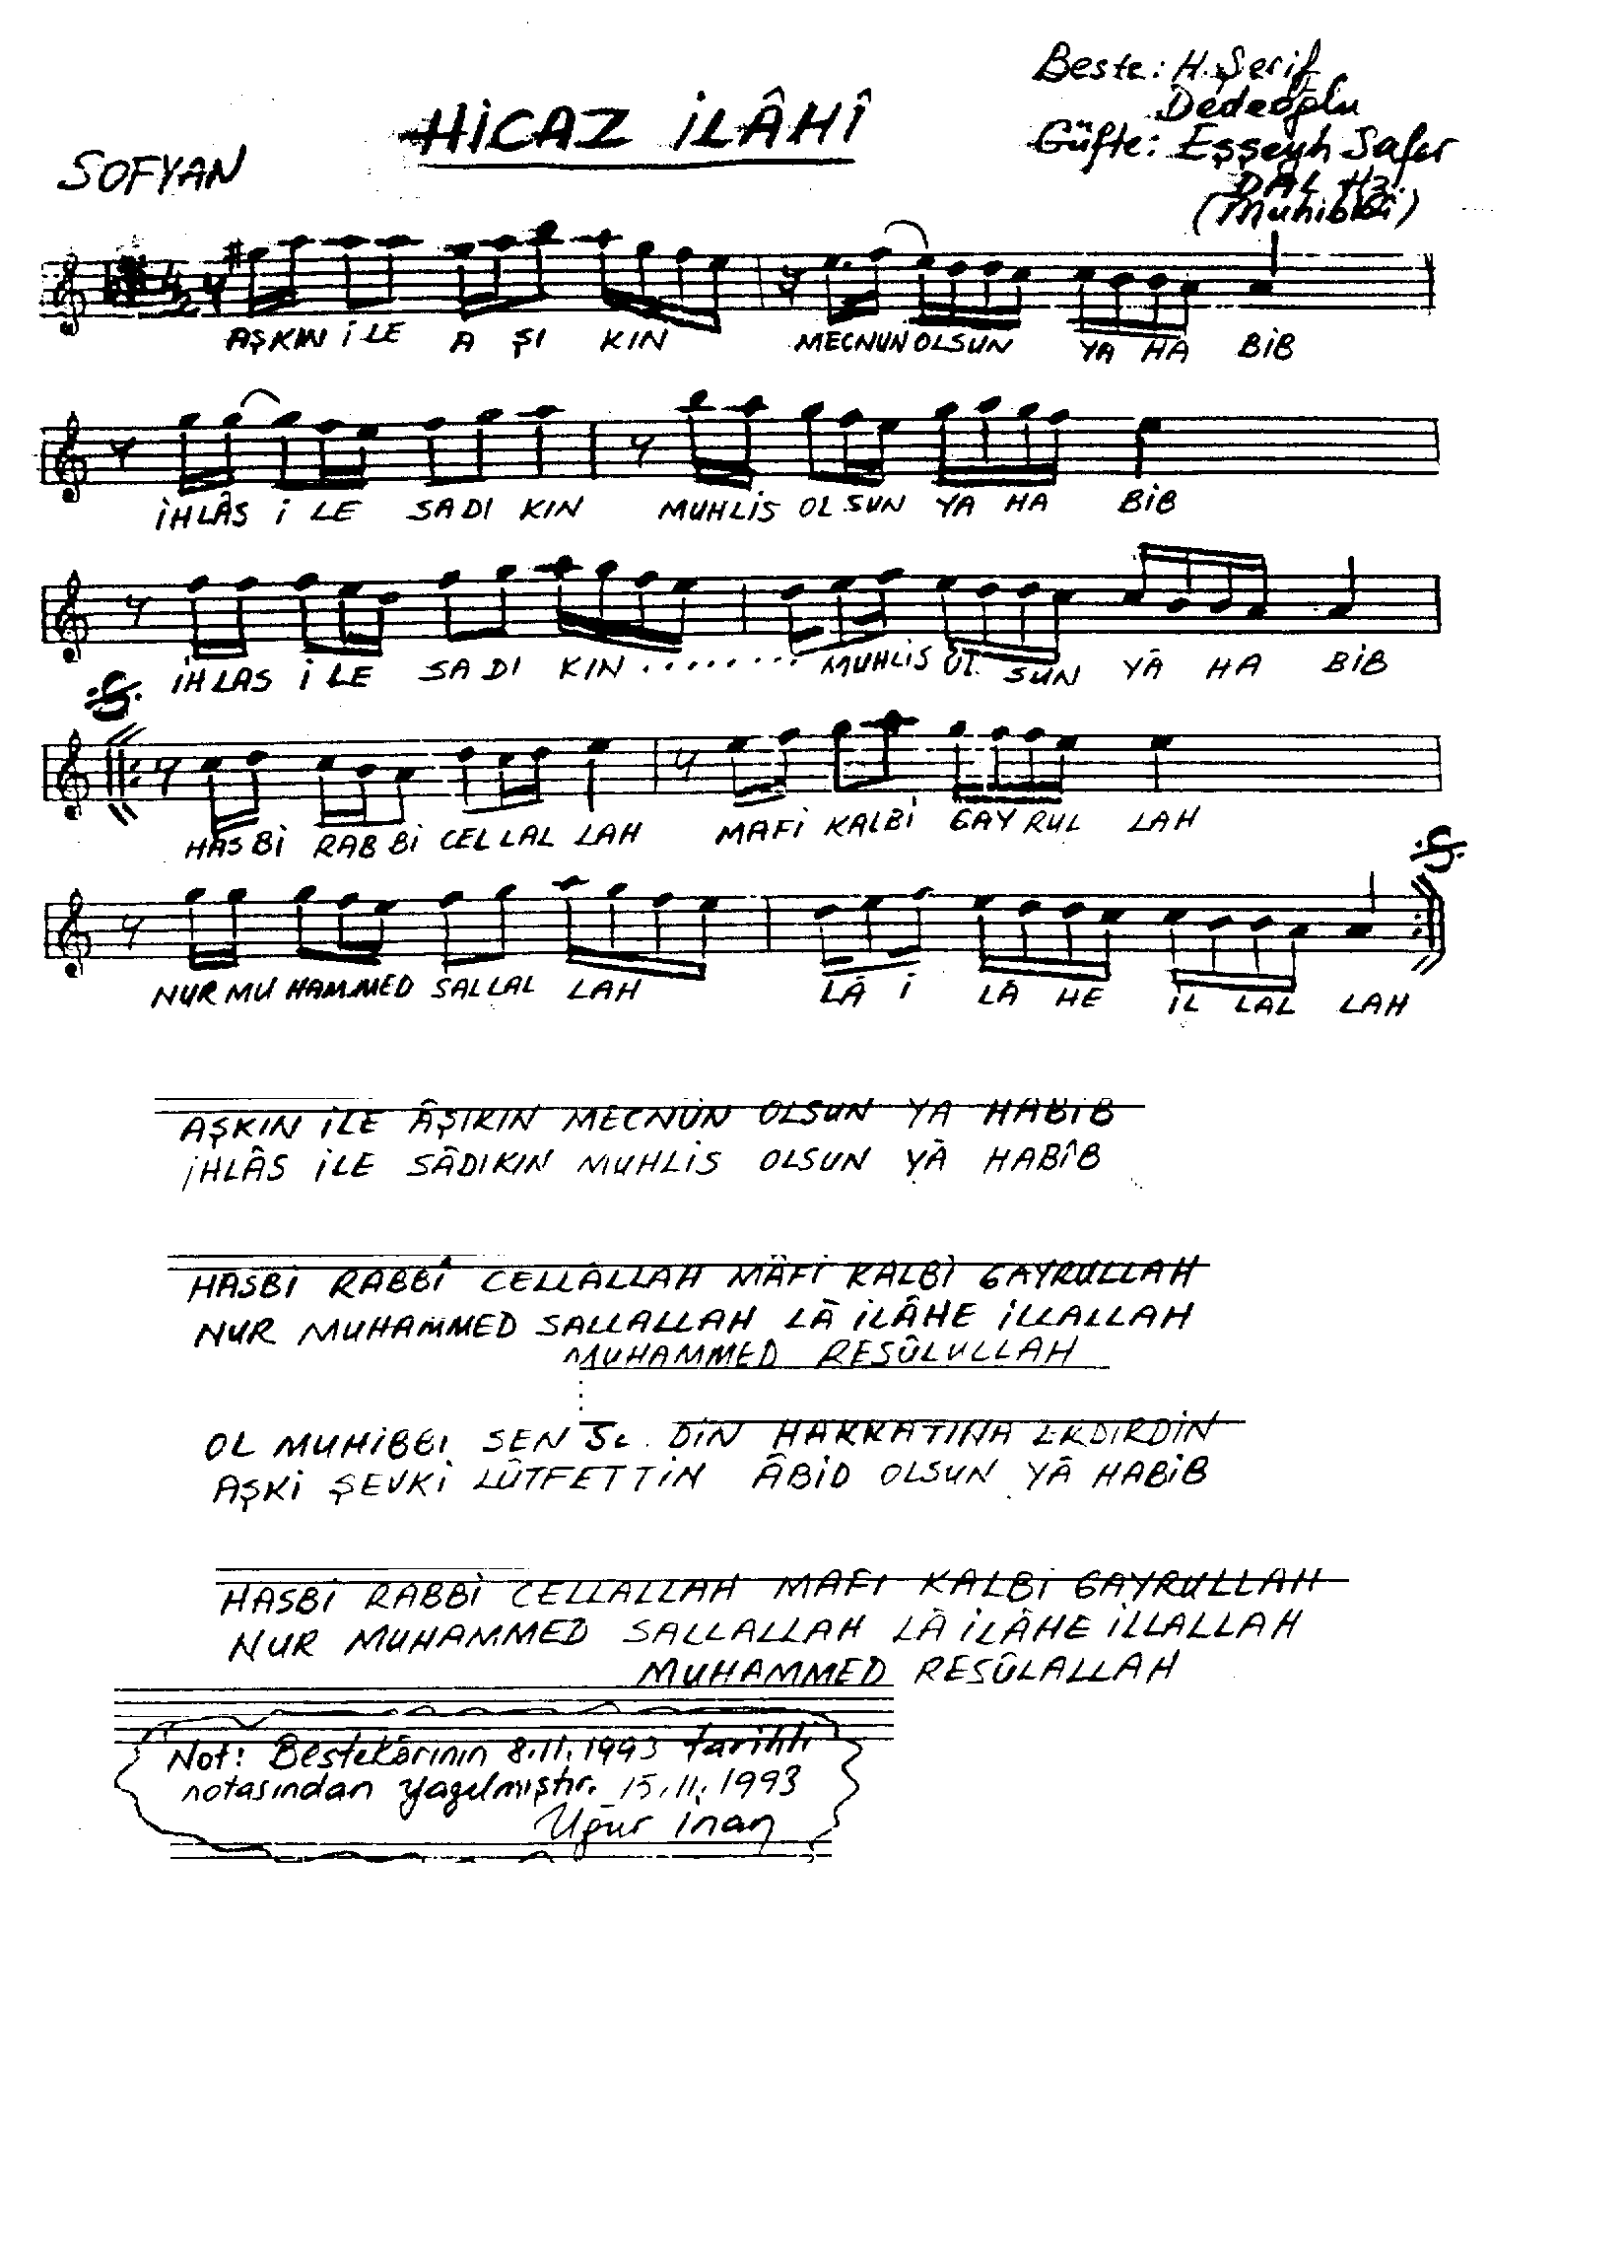 HİCAZ İLÂHÎ
Beste: H. Şerif
Dedeoğlu
Güfte: Eşşeyh Safer
DAL Hz.
(Muhibbî)
SOFYAN
AŞKIN İLE A ŞI KIN MECNUN OLSUN YA HA BİB
İHLÂS İ LE SADI KIN MUHLİS OLSUN YA HA BİB
İHLAS İ LE SADI KIN ........ MUHLİS OL SUN YÂ HA BİB
HASBİ RABBİ CELLAL LAH MAFİ KALBİ GAYRUL LAH
NURMU HAMMED SALLAL LAH LÂ İ LÂ HE İL LAL LAH
AŞKIN İLE ÂŞIKIN MECNUN OLSUN YA HABİB
İHLÂS İLE SÂDIKIN MUHLİS OLSUN YÂ HABÎB
HASBİ RABBÎ CELLÂLLAH MÂFİ KALBİ GAYRULLAH
NUR MUHAMMED SALLALLAH LÂ İLÂHE İLLALLAH
MUHAMMED RESÛLULLAH
OL MUHİBBI SEN DİN ERDİRDİN
AŞKİ ŞEVKİ LÛTFETTİN ÂBİD OLSUN YÂ HABİB
HASBİ RABBİ CELLALLAH MAFI KALBİ GAYRULLAH
NUR MUHAMMED SALLALLAH LÂ İLÂHE İLLALLAH
MUHAMMED RESÛLALLAH
Not: Bestekârının 8.11.1993 tarihli
notasından yazılmıştır. 15.11.1993
Uğur İnan